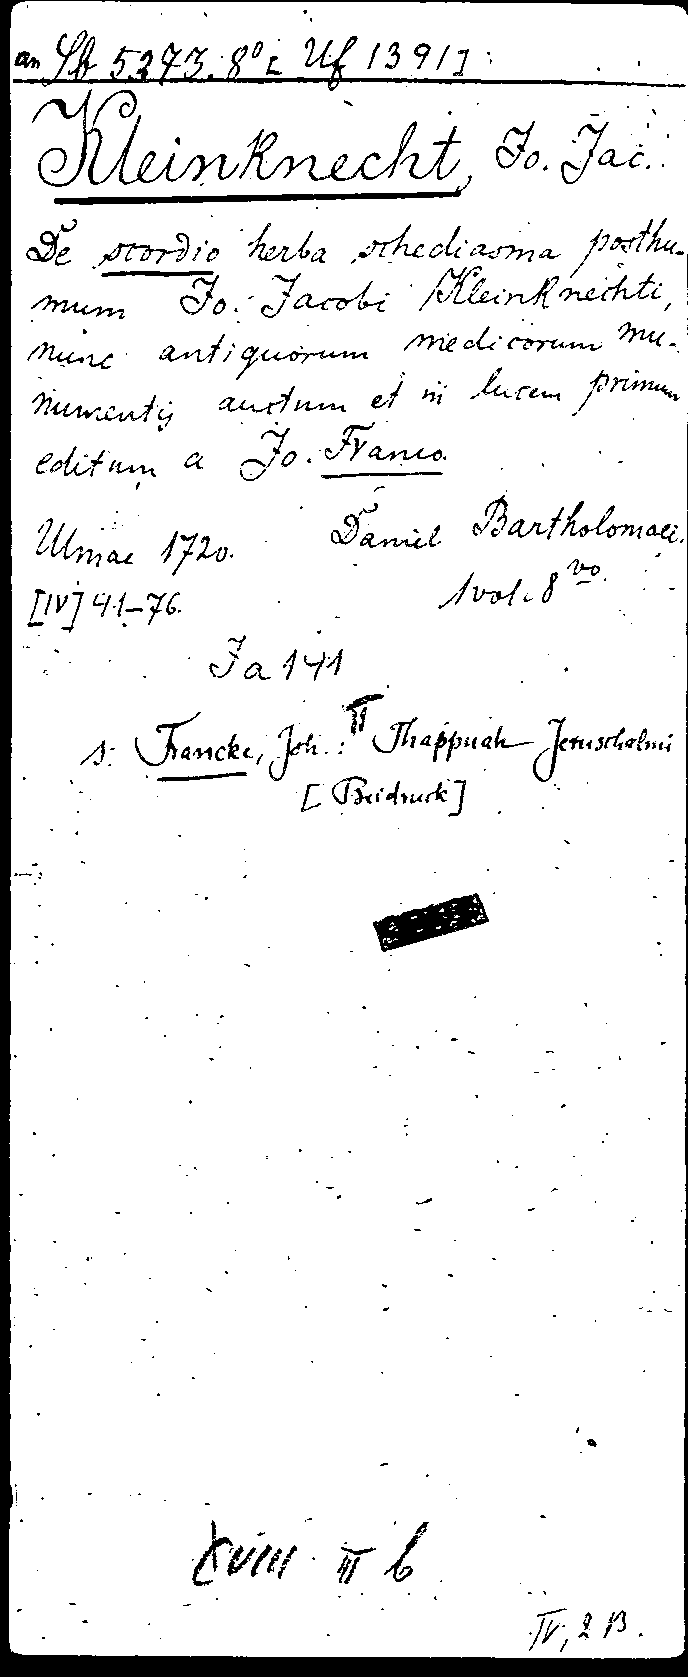 an Sb 5273. 8° [ Uf 1391]
Kleinknecht, Jo. Jac.
De scordio herba schediasma posthu-
mum Jo. Jacobi Kleinknechti,
nunc antiquorum medicorum mu-
numentis auctum et in lucem primum
editum a Jo. Franco.
Ulmae 1720. Daniel Bartholomaei.
[IV] 41-76. 1 vol. 8 vo.
Ja 141
s. Francke, Joh.: Thappuah Jeruschalmi
[Beidruck]
XVIII III b
IV, 2 B.